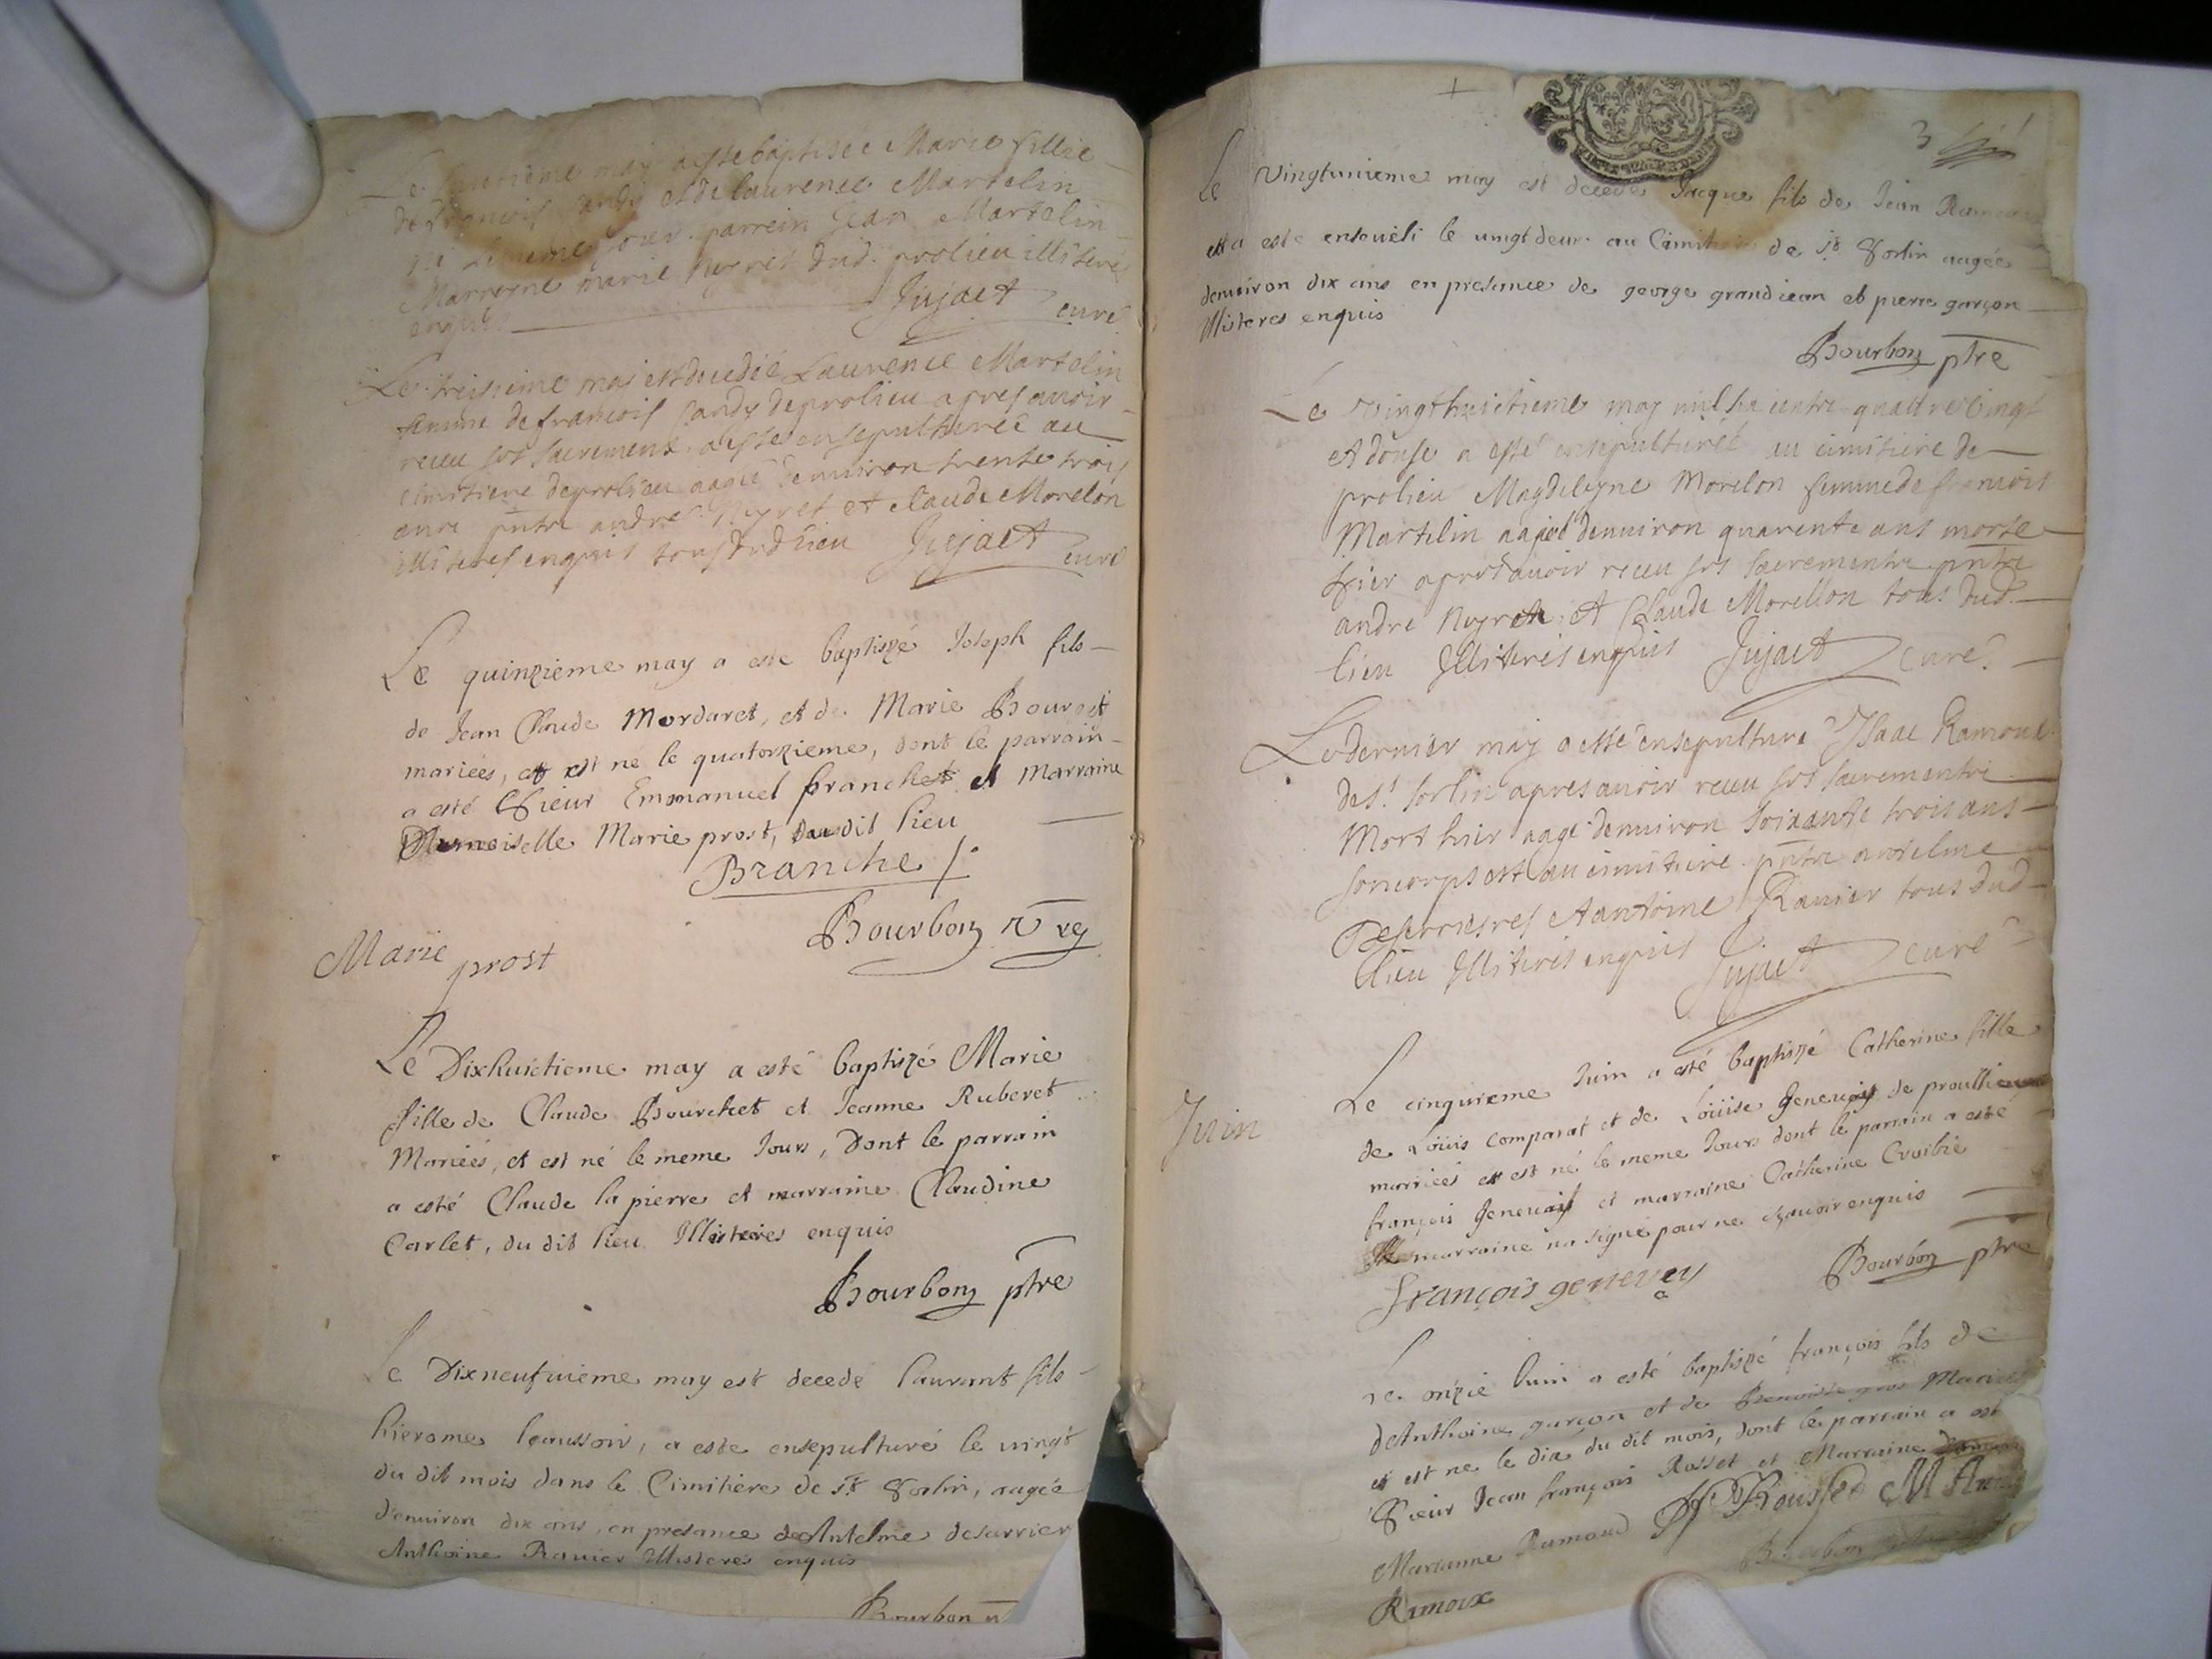 Le may a esté baptisée Marie fillie
de françois et de laurence Martelin
jour parrein Jean Martelin
Marreyne marie Neyret dud. prolieu illiterés
enquis Jujact curé
Le treisieme mai est décédée Laurence Martelin
femme de francois candy de prolieu apres avoir
receu ses sacrements a esté ensepulturée au
cimitiere de prolieu aagée denviron trente trois
ans pntz andre Neyret et claude Morelon
illiteres enquis tous dud lieu Jujact curé
Le quinzieme may a esté baptizé Joseph fils
de Jean Claude Mordaret, et de Marie Bourget
mariées, et est né le quatorzieme, dont le parrain
a esté Sieur Emmanuel branchet et Marraine
Damoiselle Marie prost, dudit lieu
Branche
Bourbon
Marie prost
Le Dixhuictieme may a esté baptizé Marie
fille de Claude Bourchet et Jeanne Ruberet
Mariées, et est né le meme Jour, Dont le parrain
a esté Claude la pierre et marraine Claudine
Carlet, du dit lieu Illisteres enquis
Bourbon ptre
Le Dixneufvieme may est decedé laurant fils
hierome, a este ensepulturé le vingt
du dit mois dans le Cimitière de St Sorlin, aagée
d'environ dix ans, en presance de Antelme deserrier
Anthoine Ranier Illisteres enquis
Bourbon
3
Le Vingtunieme may est decedé Jacque fils de Jean
et a este enseveli le vingt deux au Cimitiere de St Sorlin aagée
denviron dix ans en presance de george grandjean et pierre garçon
Illisteres enquis
Bourbon ptre
Le vingthuictieme may mil six centz quattre vingt
et douse a esté ensepulturée au cimitiere de
prolieu Magdeleyne Morelon femme de francois
Martelin aagée denviron quarente ans morte
hier apres avoir receu ses sacrements pntz
andre Neyret et Claude Morellon tous dud.
lieu Illiterés enquis Jujact curé
Le dernier may a esté ensepulturé Isaac Ramoux
de St sorlin apres avoir receu ses sacrementz
Mort hier aagé denviron soixante trois ans
son corps est au cimitiere pntz antelme
Deserrieres et antoine Ranier tous dud
lieu Illiterés enquis Jujact curé
Juin
Le cinquieme Juin a esté baptizé Catherine fille
de Loüis comparat et de Loüise genevays de proullieu
mariées et est né le meme Jour dont le parrain a esté
françois genevays et marraine Catherine Cruibie
marraine na signé pour ne sçavoir enquis
françois genevey Bourbon ptre
Le onzie Juin a esté baptizé françois fils de
dAnthoine garçon et de Benoiste gros Mariées
et est ne le dix du dit mois, dont le parrain a esté
Sieur Jean françois Rosset et Marraine
Marianne Ramoud Rousset M Anne
Ramoux Bourbon